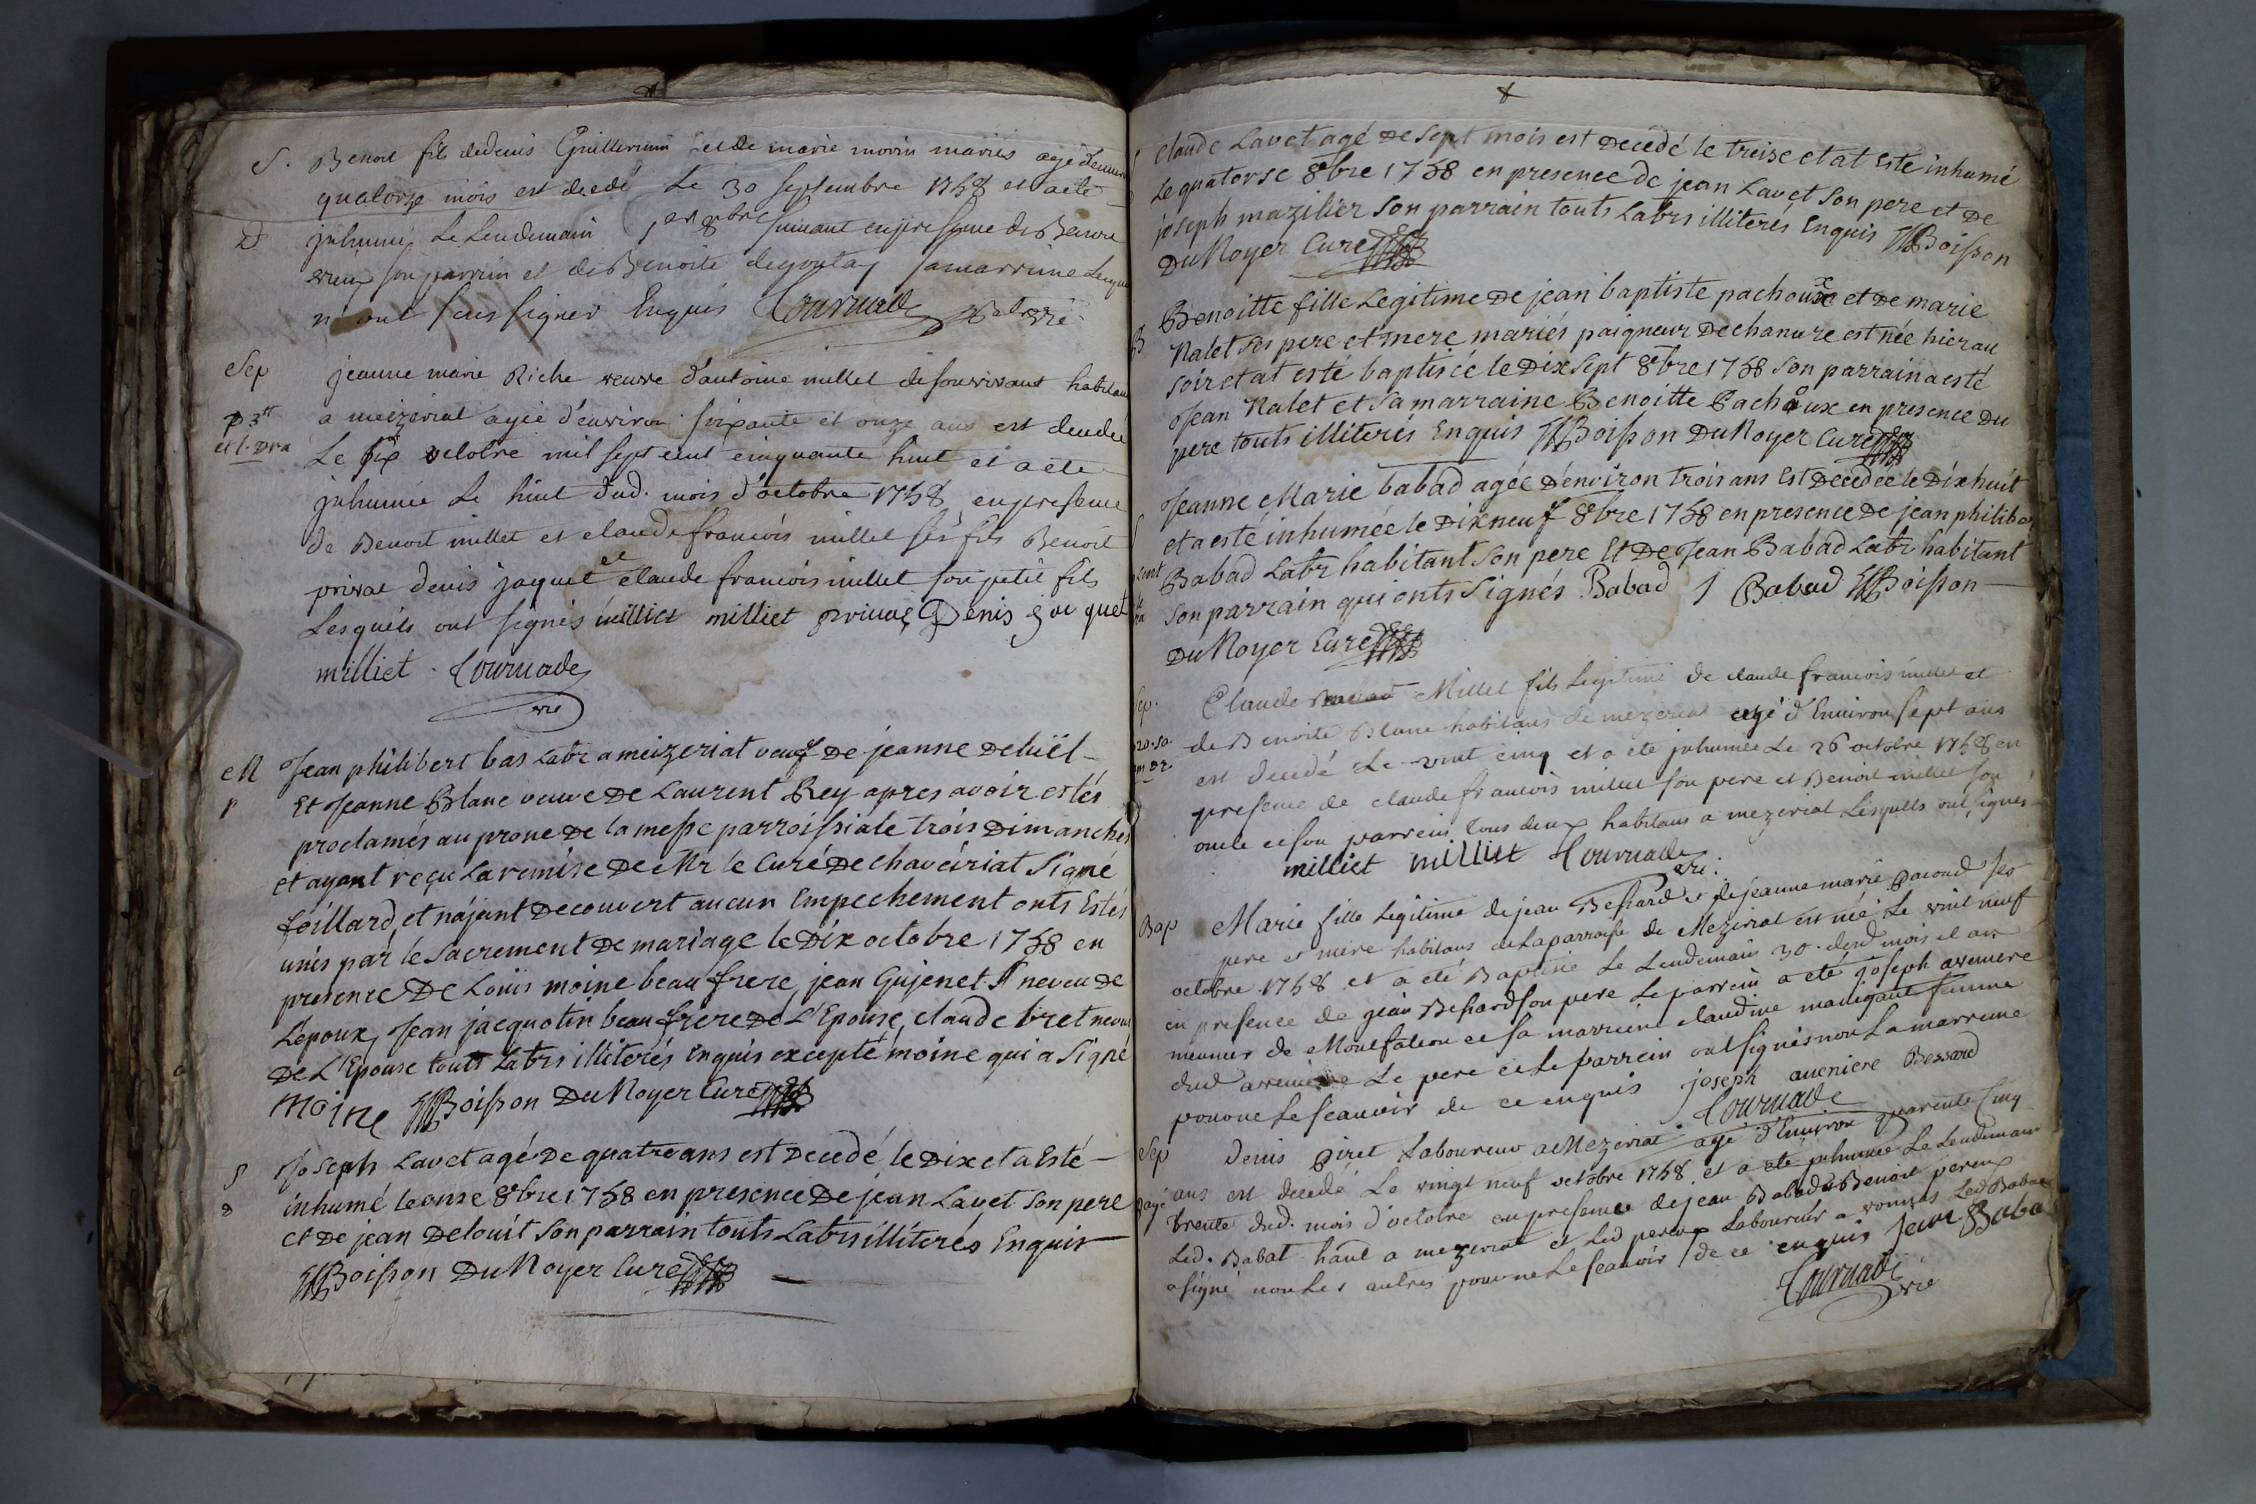 S. Benoit fils de denis Guillermin et de marie morin mariés agé d'environ
quatorze mois est decedé le 30 septembre 1758 et a eté
D inhumé le lendemain 1er 8bre suivant en presence de
son parrain et de Benoite sa marraine lesquels
n'ont scus signer Enquis Tournade vic
Sep jeanne marie Riche veuve d'antoine millet de son vivant habitant
p 3tt a meizeriat agée d'environ soixante et onze ans est decedée
Le six octobre mil sept cent cinquante huit et a ete
inhumée le huit dud. mois d'octobre 1758 en presence
de Benoit millet et claude francois millet ses fils Benoit
privat denis jaquet et claude francois millet son petit fils
Lesquels ont signés milliet milliet privat Denis jaquet
milliet Tournade
vic
M Jean philibert bas Labr a meizeriat veuf De jeanne
p Et Jeanne Blanc veuve De Laurent Rey apres avoir estés
proclamés au prone De la messe parroissiale trois Dimanches
et ayant reçu La remise De Mr le Curé De chaveiriat Signé
foillard, et n'ajant Decouvert aucun Empechement onts Estés
unis par le Sacrement De mariage le Dix octobre 1758 en
presence De Loüis moine beau frere, jean Gujenet neveu de
L'epoux, Jean jacquotin beau frere De L'Epouse, claude bret neveu
De L'Epouse touts Labrs illiterés Enquis excepté moine qui a Signé
moine Boisson Du Noyer Curé
S Joseph Lavet agé De quatre ans est Decedé le Dix et a Esté
D inhumé le onse 8bre 1758 en presence De jean Lavet son pere
et De jean Son parrain touts Labrs illiterés Enquis
Boisson Du Noyer Curé
Claude Lavet agé De Sept mois est Decedé le treise et at Esté inhumé
Le quatorse 8bre 1758 en presence de jean Lavet Son pere et De
joseph mazilier Son parrain touts Labrs illiterés Enquis Boisson
Du Noyer Curé
B Benoitte fille Legitime De jean baptiste pachoux et De marie
Nalet ses pere et mere mariés paigneur De chanvre est née hier au
soir et at esté baptisée le Dix sept 8bre 1758 son parrain a esté
Jean Nalet et Sa marraine Benoitte Pachoux en presence Du
pere touts illiterés Enquis Boisson Du Noyer Curé
Jeanne Marie babad agée D'environ trois ans Est Decedée le Dix huit
et a esté inhumée le Dix neuf 8bre 1758 en presence De jean philibert
Babad Labr habitant Son pere Et De Jean Babad Labr habitant
Son parrain qui onts Signés Babad J Babad Boisson
Du Noyer Curé
Sep. Claude Millet fils Legitime de claude francois millet et
de Benoite Blanc habitans de mezeriat agé d'Environ sept ans
est decedé Le vint cinq et a ete inhumée Le 26 octobre 1758 en
presence de claude francois millet son pere et Benoit millet son
oncle et son parrein tous deux habitans a mezeriat Lesquels ont signés
milliet milliet Tournade
vic.
Bap Marie fille Legitime de jean Bessard et de jeanne marie pacoud ses
pere et mere habitans de La parroisse de Mezeriat est née Le vint neuf
octobre 1758 et a été Baptisée Le Lendemain 30. desd mois et an
en presence de jean Bessard son pere Le parrein a eté joseph aveniere
meunier de Montfalcon et sa marreine claudine femme
dud aveniere Le pere et Le parrein ont signés non La marreine
pour ne Le scauoir de ce enquis joseph aueniere Bessard
Tournade
Sep denis piret Laboureur a Mezeriat agé d'Environ quarente Cinq
ans est decedé Le vingt neuf octobre 1758 et a eté inhumée Le Lendemain
payé trente dud. mois d'octobre en presence de jean Babad et Benoit pereux
Led. Babat hant a mezeriat et Led pereux Laboureur a vonnas Led Babad
a signé non Les autres pour ne Le scauoir de ce enquis jean Baba
Tournade
vic